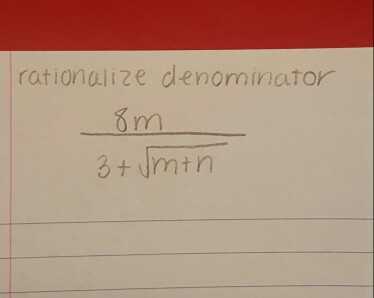 rationalize denominator
8m
3 + √m+n